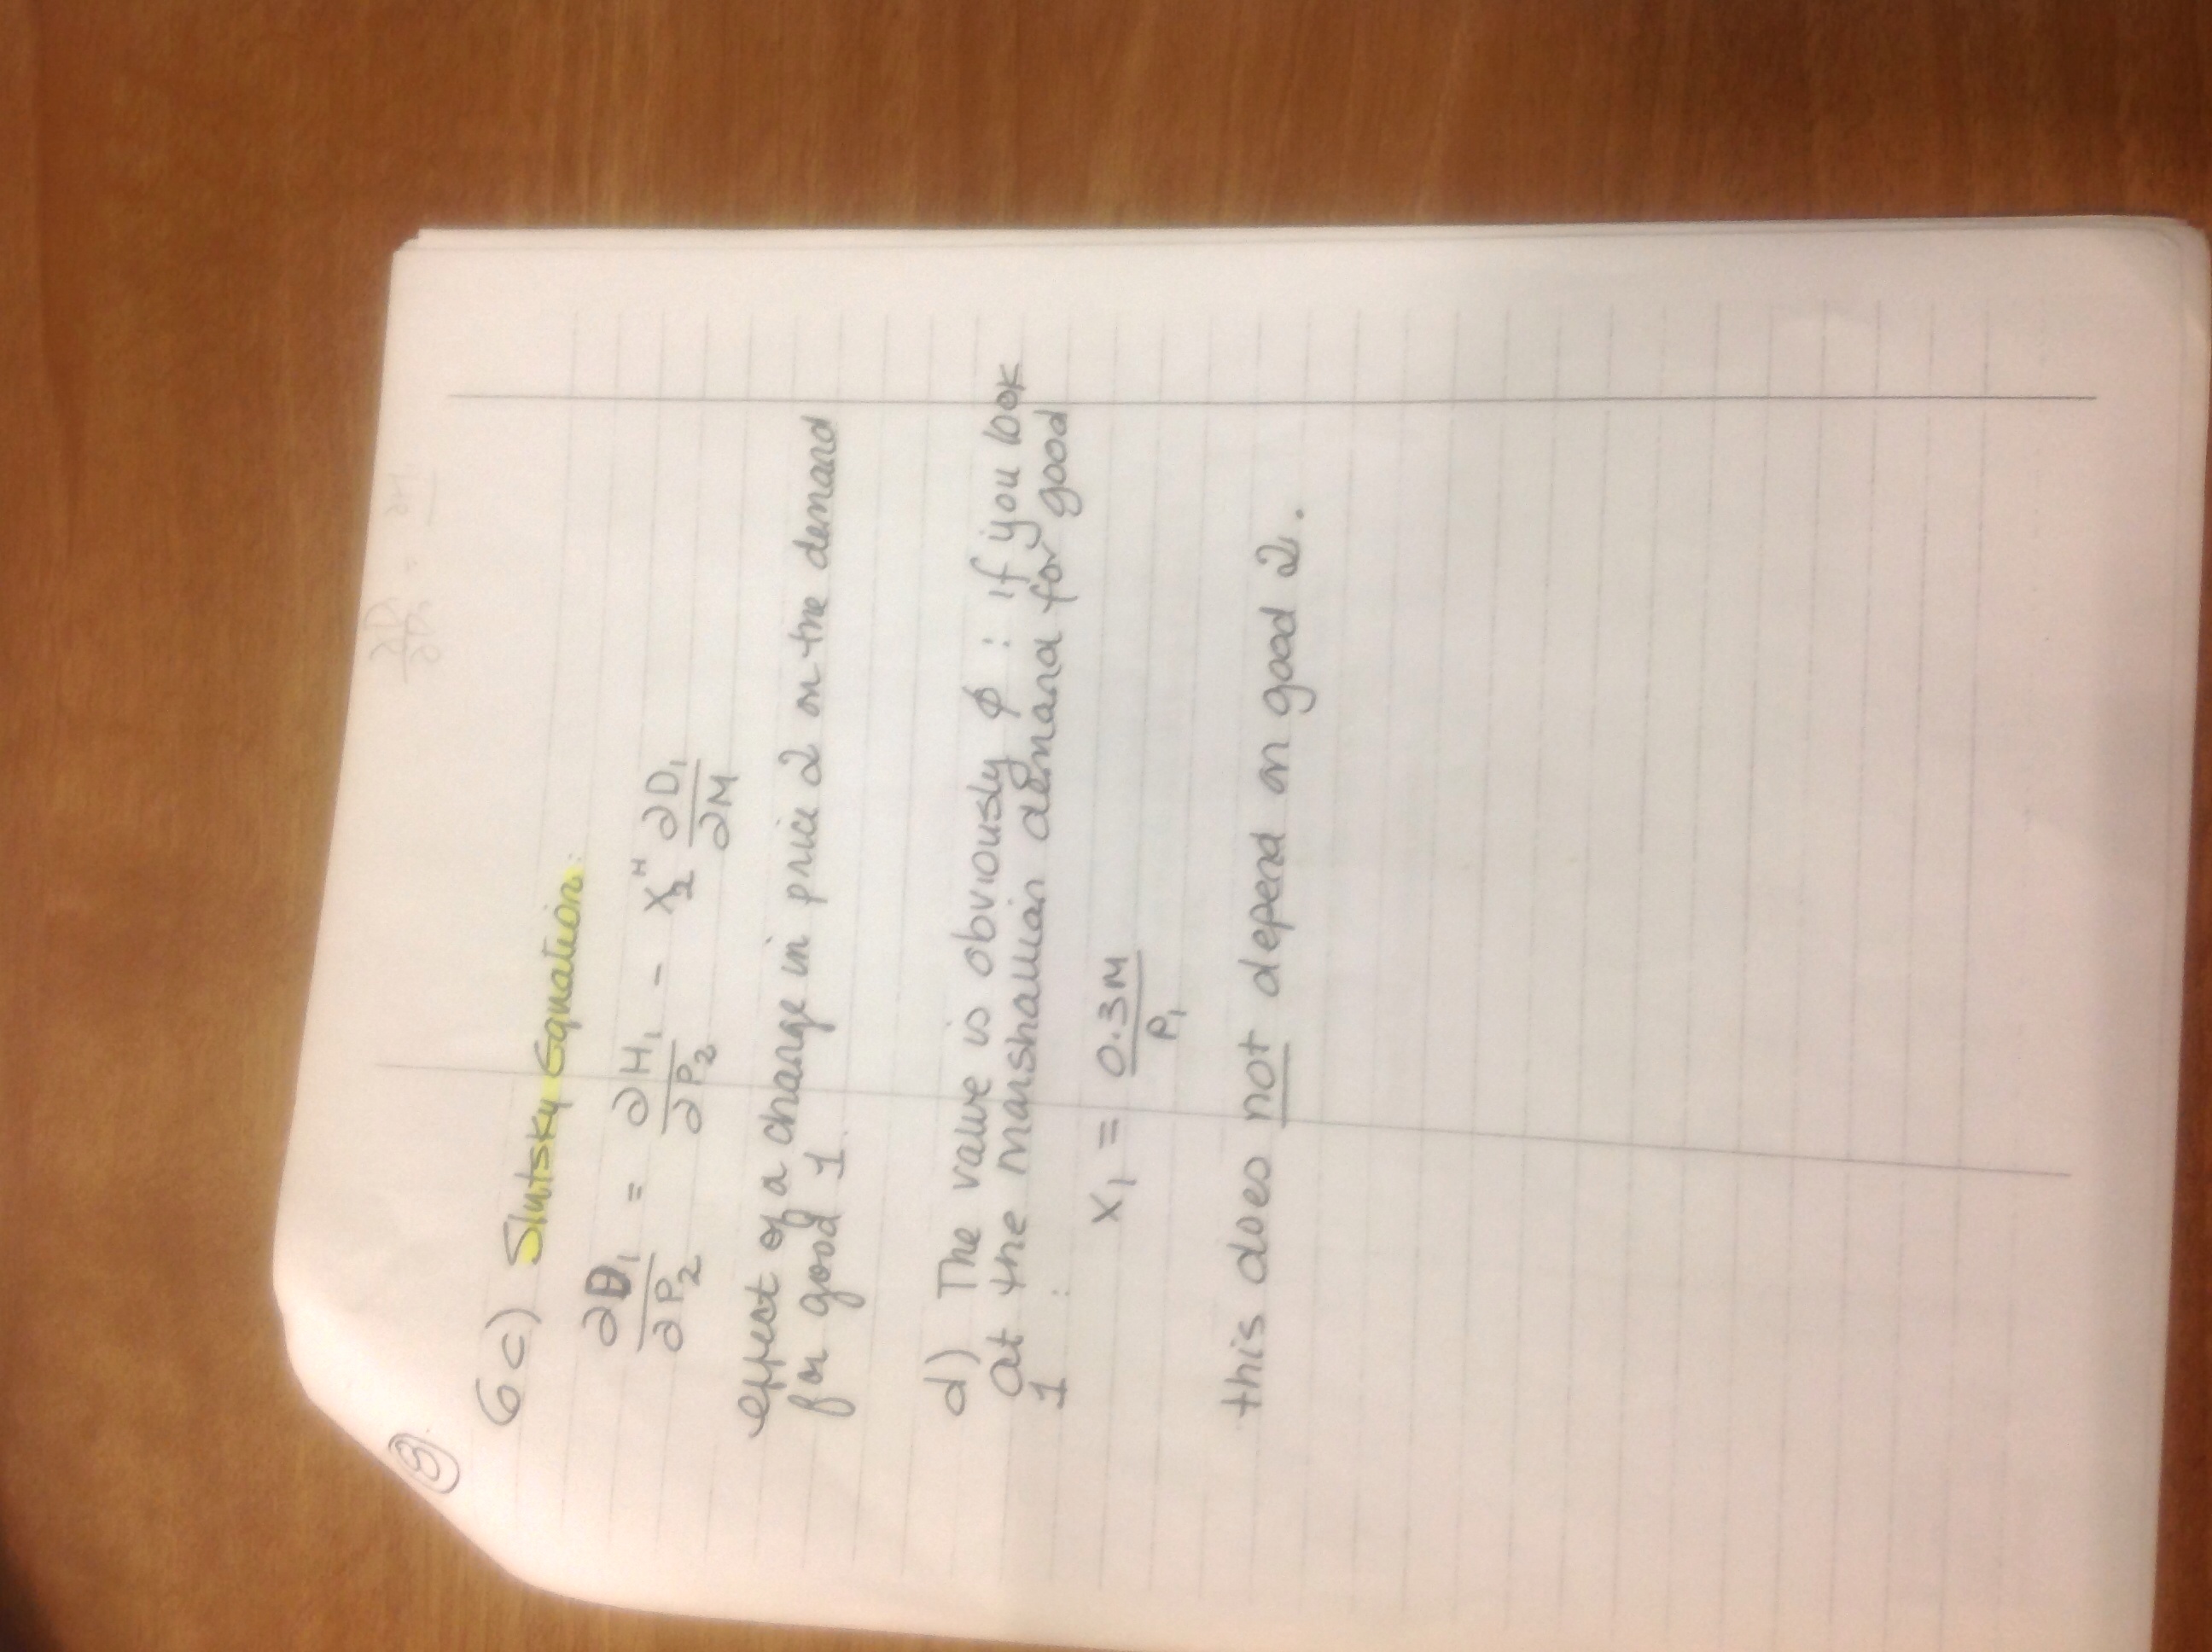 3
6c) Slutsky Equation:
∂D₁/∂P₂ = ∂H₁/∂P₂ - X₂ᴴ ∂D₁/∂M
effect of a change in price 2 on the demand
for good 1.
d) The value is obviously ∅ : if you look
at the marshallian demand for good
1 :
X₁ = 0.3M/P₁
this does not depend on good 2.